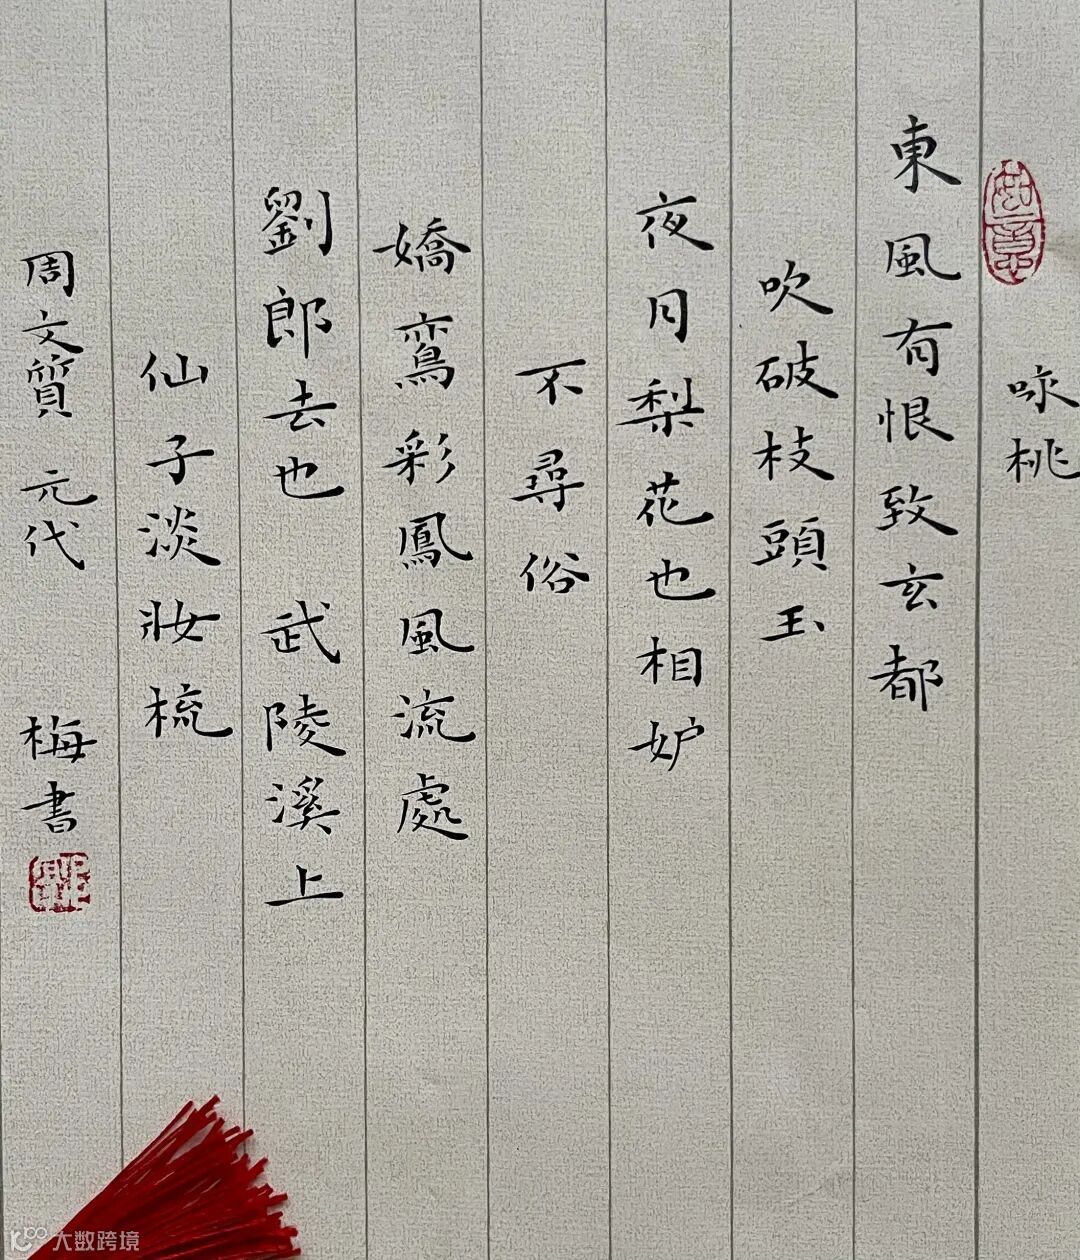 咏桃
東風有恨致玄都
吹破枝頭玉
夜月梨花也相妒
不尋俗
嬌鸞彩鳳風流處
劉郎去也 武陵溪上
仙子淡妝梳
周文質 元代 梅書
大数跨境